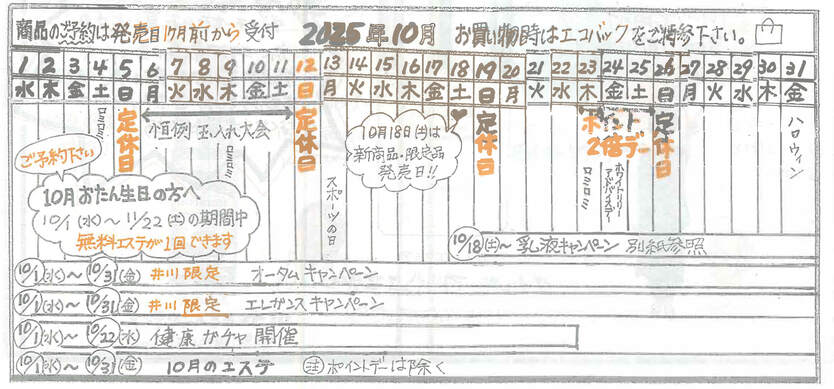 商品のご予約は発売日1ヶ月前から受付 2025年10月 お買い物時はエコバックをご持参下さい。
1 2 3 4 5 6 7 8 9 10 11 12 13 14 15 16 17 18 19 20 21 22 23 24 25 26 27 28 29 30 31
水 木 金 土 日 月 火 水 木 金 土 日 月 火 水 木 金 土 日 月 火 水 木 金 土 日 月 火 水 木 金
ロミロミ
定休日
恒例 玉入れ大会
ロミロミ
定休日
スポーツの日
10月18日(土)は
新商品・限定品
発売日!!
定休日
ポイント
2倍デー
ロミロミ
ホワイトリリー
アドバイスデー
定休日
ハロウィン
ご予約下さい
10月おたん生日の方へ
10/1(水)～11/22(土)の期間中
無料エステが1回できます
10/18(土)～乳液キャンペーン 別紙参照
10/1(水)～10/31(金) 井川限定 オータムキャンペーン
10/1(水)～10/31(金) 井川限定 エレガンスキャンペーン
10/1(水)～10/22(水) 健康ガチャ開催
10/1(水)～10/31(金) 10月のエステ 注 ポイントデーは除く